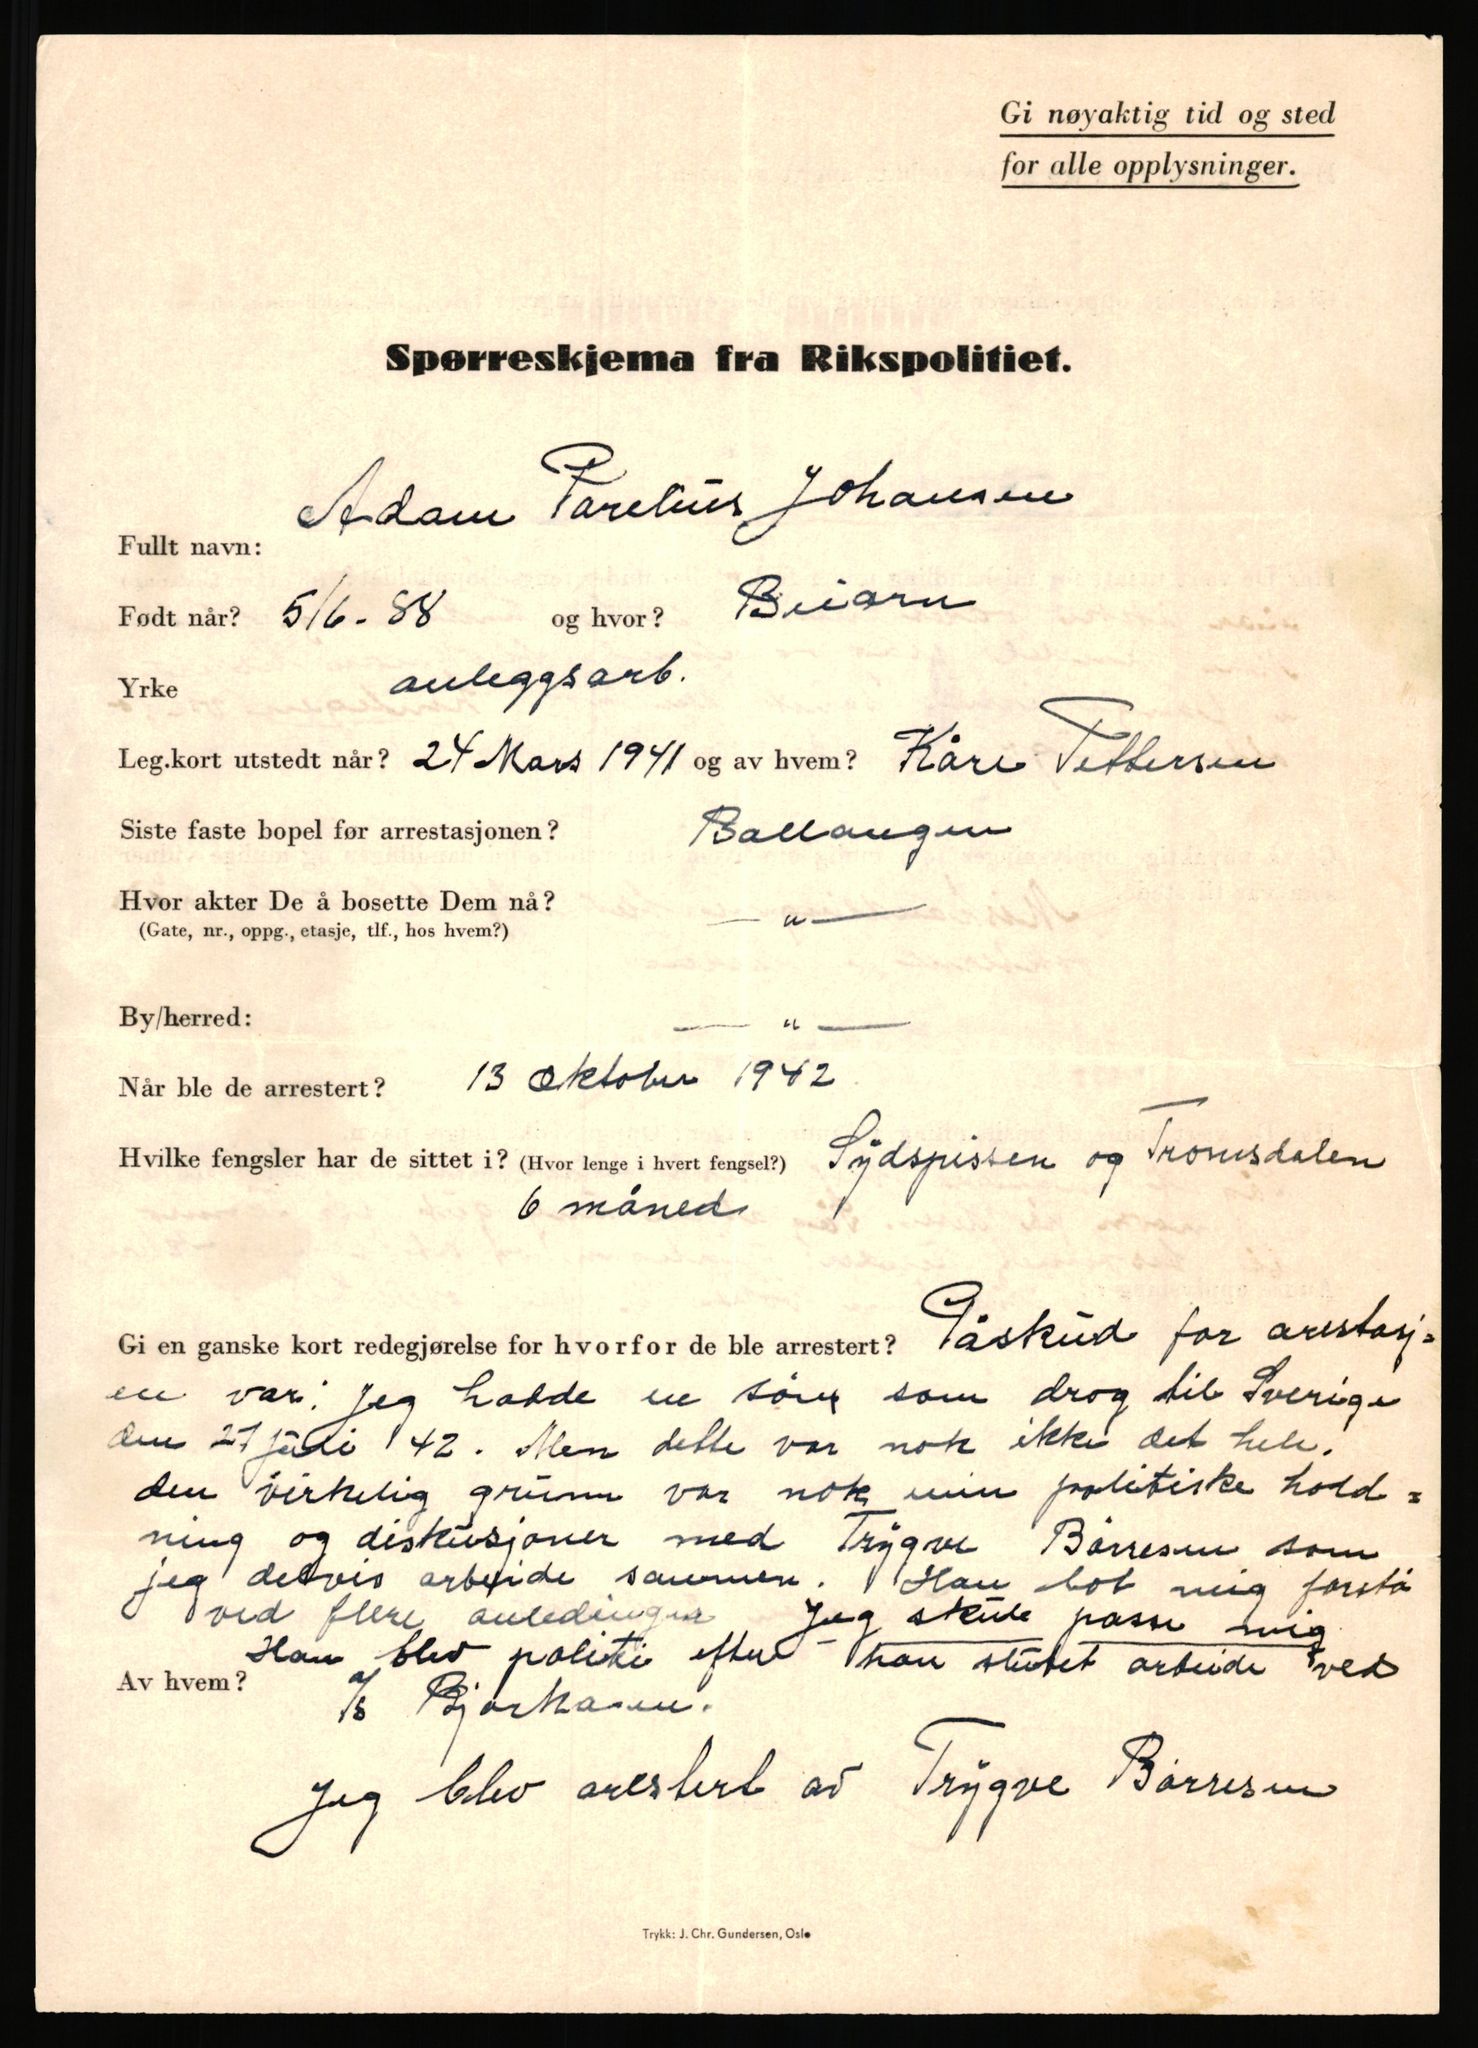 Gi nøyaktig tid og sted
for alle opplysninger.
Spørreskjema fra Rikspolitiet.
Fullt navn: Adam Parelius Johansen
Født når? 5/6-88 og hvor? Beiarn
Yrke anleggsarb.
Leg.kort utstedt når? 24 Mars 1941 og av hvem? Kåre Pettersen
Siste faste bopel før arrestasjonen? Ballangen
Hvor akter De å bosette Dem nå? — " —
(Gate, nr., oppg., etasje, tlf., hos hvem?)
By/herred: — " —
Når ble de arrestert? 13 Oktober 1942
Hvilke fengsler har de sittet i? (Hvor lenge i hvert fengsel?) Sydspissen og Tromsdalen
6 måned
Gi en ganske kort redegjørelse for hvorfor de ble arrestert? Påskud for arestasj=
en var: Jeg hadde en sön som drog til Sverige
den 27 juli 42. Men dette var nok ikke det hele.
den virkelig grunn var nok min politiske hold=
ning og diskusjoner med Trygve Börresen som
jeg delvis arbeide sammen. Han lot mig forstå
ved flere anledinger Jeg skule passe mig
Han blev politi efter han slutet arbeide ved
Av hvem? a/s Bjørkåsen.
Jeg blev arestert av Trygve Börresen
Trykk: J. Chr. Gundersen, Oslo